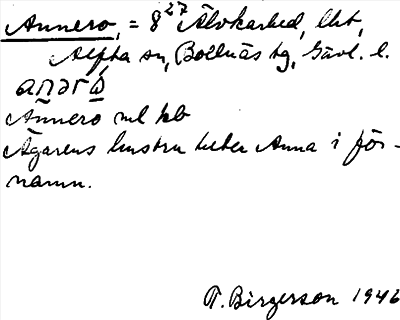 Annero, = 8²⁷ Älvkarhed, lht,
Alfta sn, Bollnäs tg, Gävl. l.
Annero ml kb
Ägarens hustru heter Anna i för-
namn.
T. Birgerson 1946